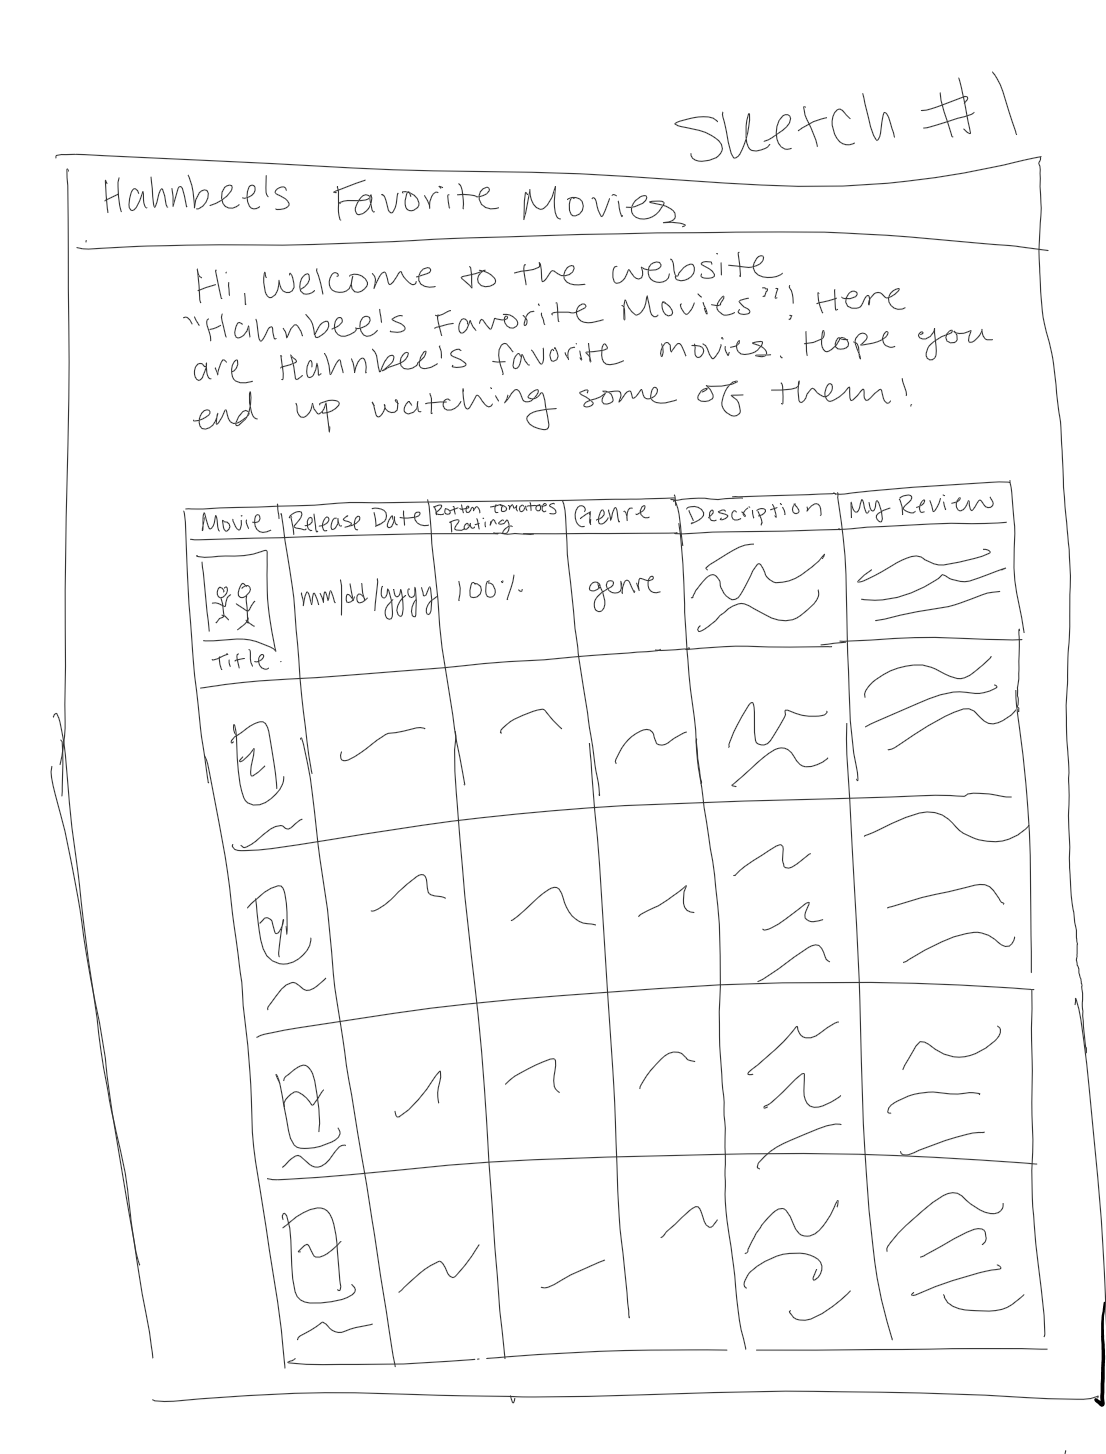 Sketch #1
Hahnbee's Favorite Movies
Hi, Welcome to the website
"Hahnbee's Favorite Movies"! Here
are Hahnbee's favorite movies. Hope you
end up watching some of them!
Movie Release Date Rotten Tomatoes Rating Genre Description My Review
mm/dd/yyyy 100% genre
Title.